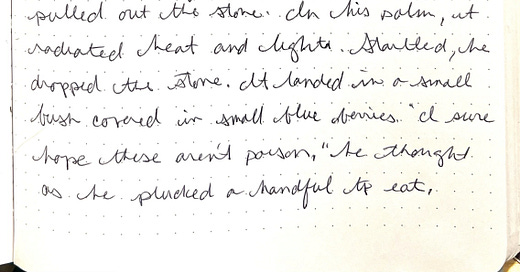 pulled out the stone. In his palm, it
radiated heat and light. Startled, he
dropped the stone. It landed in a small
bush covered in small blue berries. "I sure
hope these aren't poison," he thought
as he plucked a handful to eat.